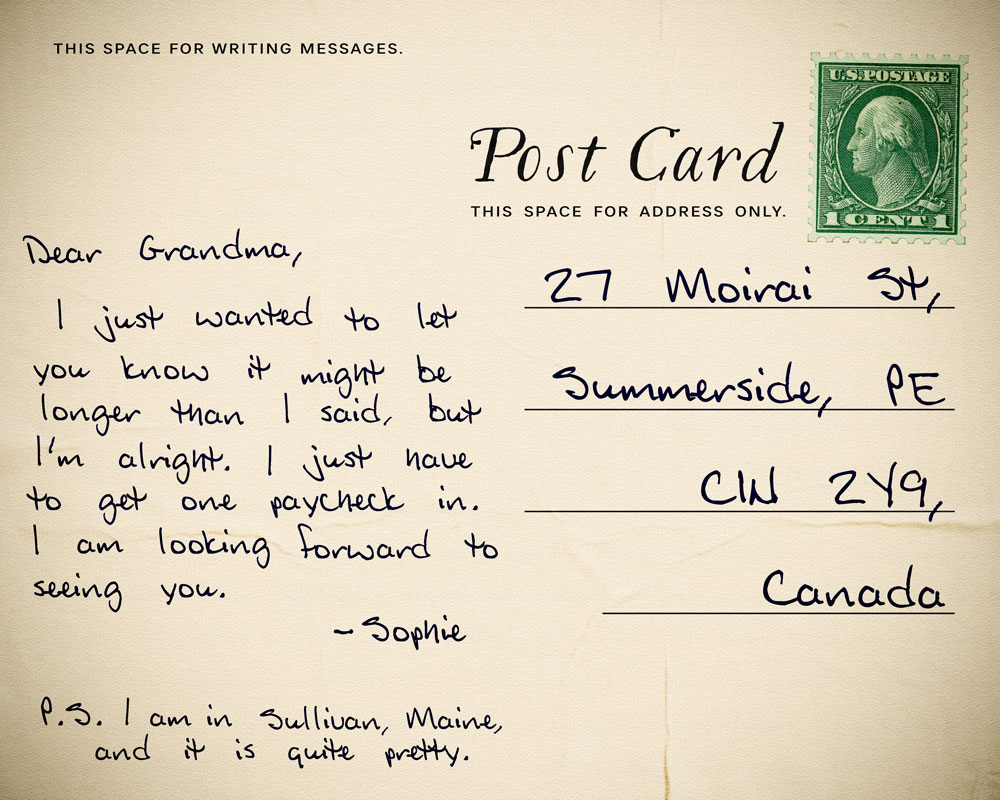 THIS SPACE FOR WRITING MESSAGES.
U.S. POSTAGE
1 CENT 1
Post Card
THIS SPACE FOR ADDRESS ONLY.
Dear Grandma,
I just wanted to let
you know it might be
longer than I said, but
I'm alright. I just have
to get one paycheck in.
I am looking forward to
seeing you.
- Sophie
P.S. I am in Sullivan, Maine,
and it is quite pretty.
27 Moirai St,
Summerside, PE
C1N 2Y9,
Canada